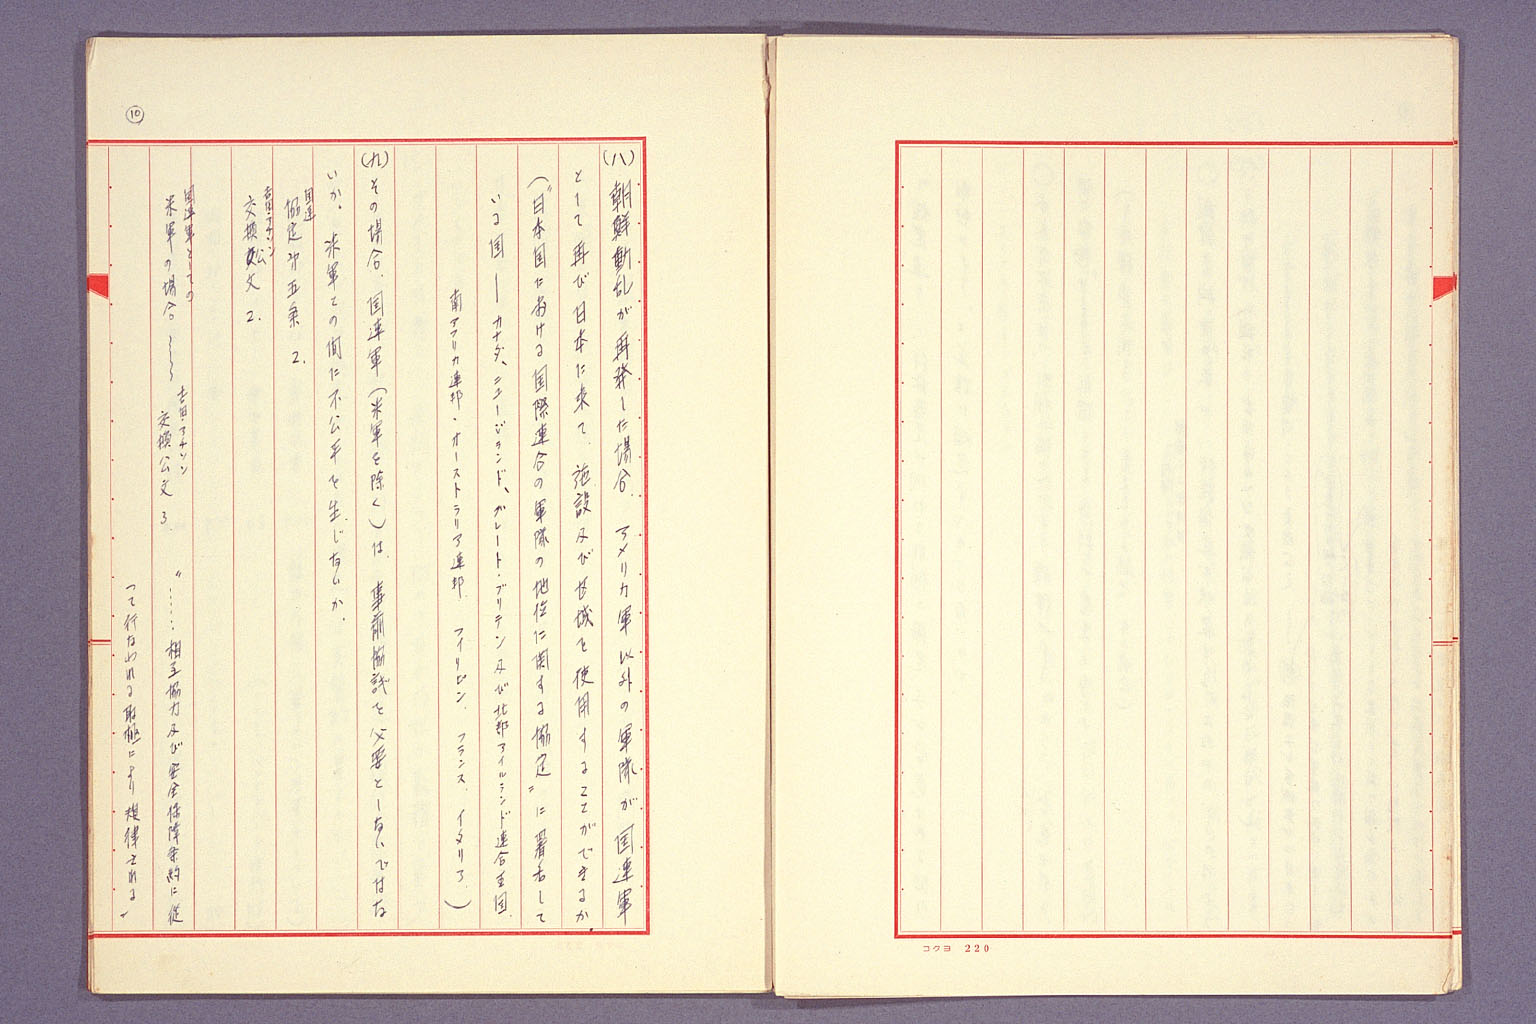 コクヨ 220
⑩
(八)朝鮮動乱が再発した場合、アメリカ軍以外の軍隊が国連軍
として再び日本に来て、施設及び区域を使用することができるか。
(“日本国における国際連合の軍隊の地位に関する協定”に署名して
いる国――カナダ、ニュージランド、グレート・ブリテン及び北部アイルランド連合王国、
南アフリカ連邦、オーストラリア連邦、フィリピン、フランス、イタリア、)
(九)その場合、国連軍(米軍を除く)は、事前協議を必要としないではな
いか。米軍との間に不公平を生じないか。
国連
協定第五条 2.
吉田・アチソン
交換公文 2.
国連軍としての
米軍の場合〜〜〜
吉田・アチソン
交換公文 3.
“……相互協力及び安全保障条約に従
って行なわれる取極により規律される”